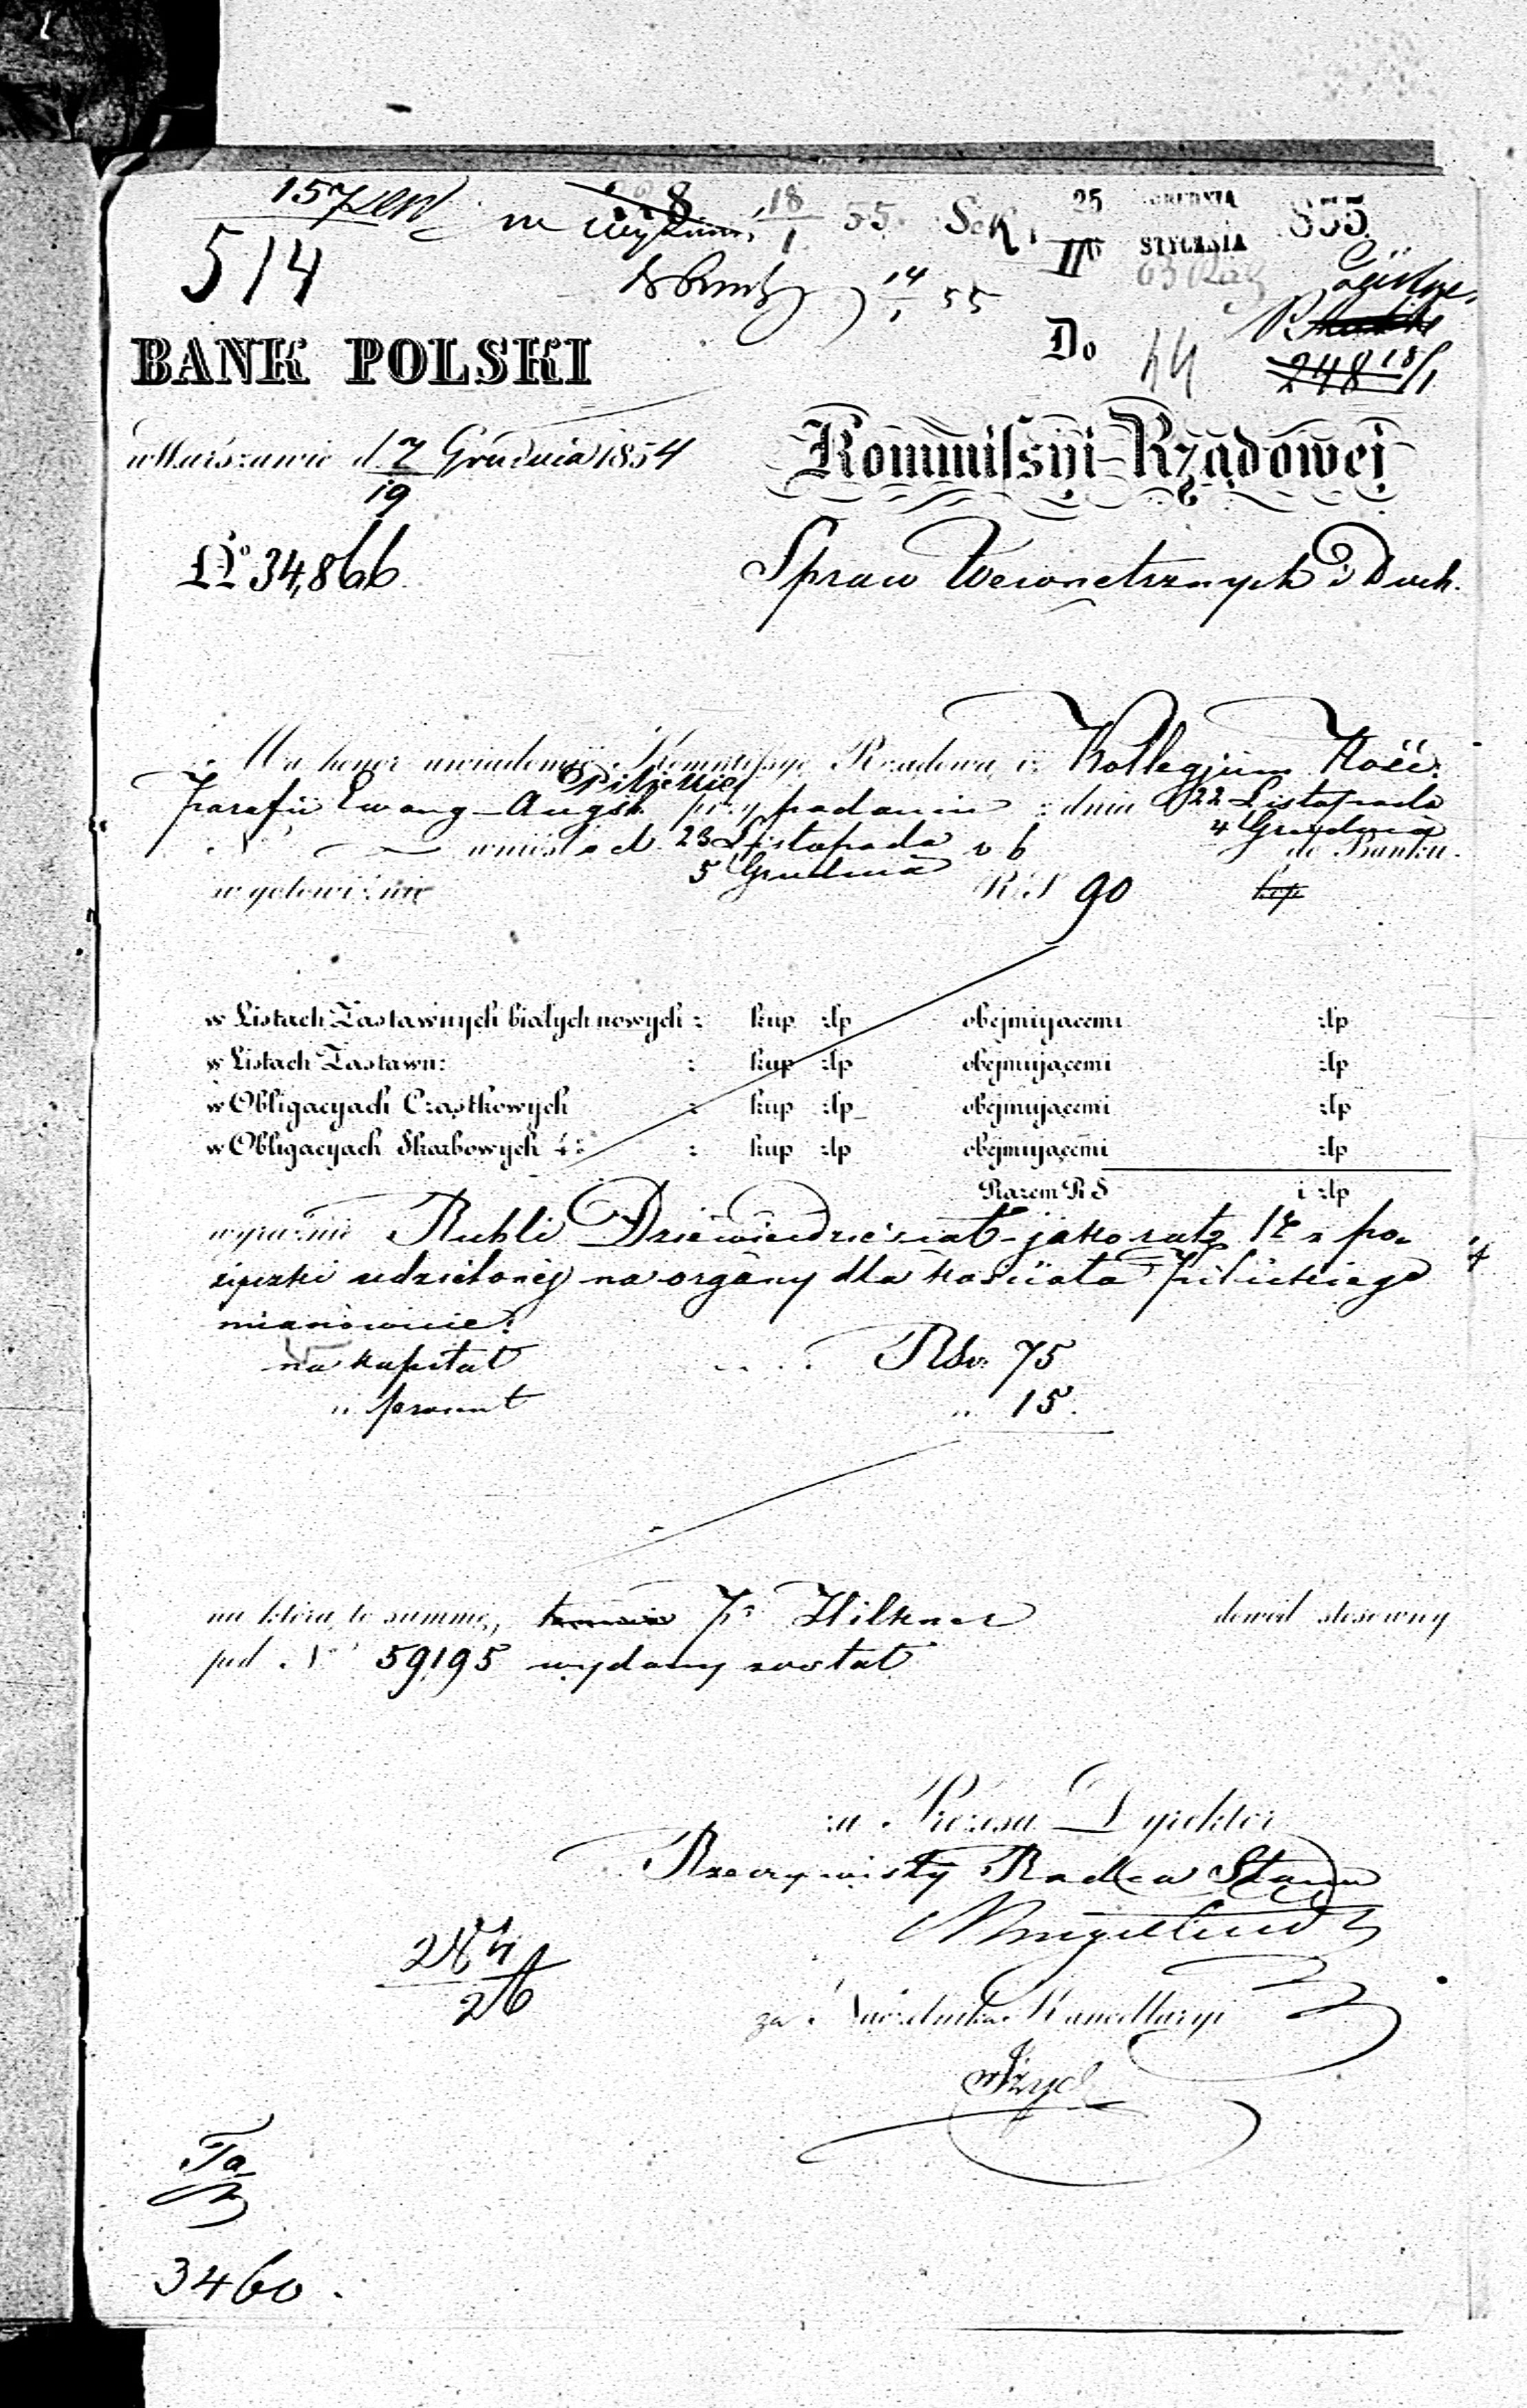 514
18/1 55 Sek. 25 GRUDNIA
II 6 STYCZNIA 855
14/1 55
BANK POLSKI
Do 44
248 18/1
w Warszawie d 7/19 Grudnia 1854
Kommissyi Rządowej
No 34,866
Spraw Wewnetrznych i Duch.
Ma honor uwiadomić Kommissyę Rządową iż Kollegjum Kość:
Pilickiej
parafii Ewang-Augsb. przy podaniu z dnia 22 Listopada
4 Grudnia
N wniosło d. 23 Listopada r b do Banku.
5 Grudnia
w gotowiźnie RS 90 kop
w Listach Zastawnych białych nowych : kup złp obejmujacemi złp
w Listach Zastawn: : kup złp obejmującemi złp
w Obligacyach Cząstkowych : kup złp obejmującemi złp
w Obligacyach Skarbowych 4 : kup złp obejmującemi złp
Razem R S i złp
wyraźnie Rubli Dziewiędziesiat - jako ratę 1ą z po-
życzki udzielonej na organy dla kościoła Pilickiego
mianowicie:
na kapitał . . . . RSr. 75
" procent " 15.
na którą to summę, Pr Hilkner dowód stosowny
pod N 59195 wydany został
za Prezesa Dyrektor
Rzeczywisty Radca Stanu
26
za Naczelnika Kancellaryi
3460.